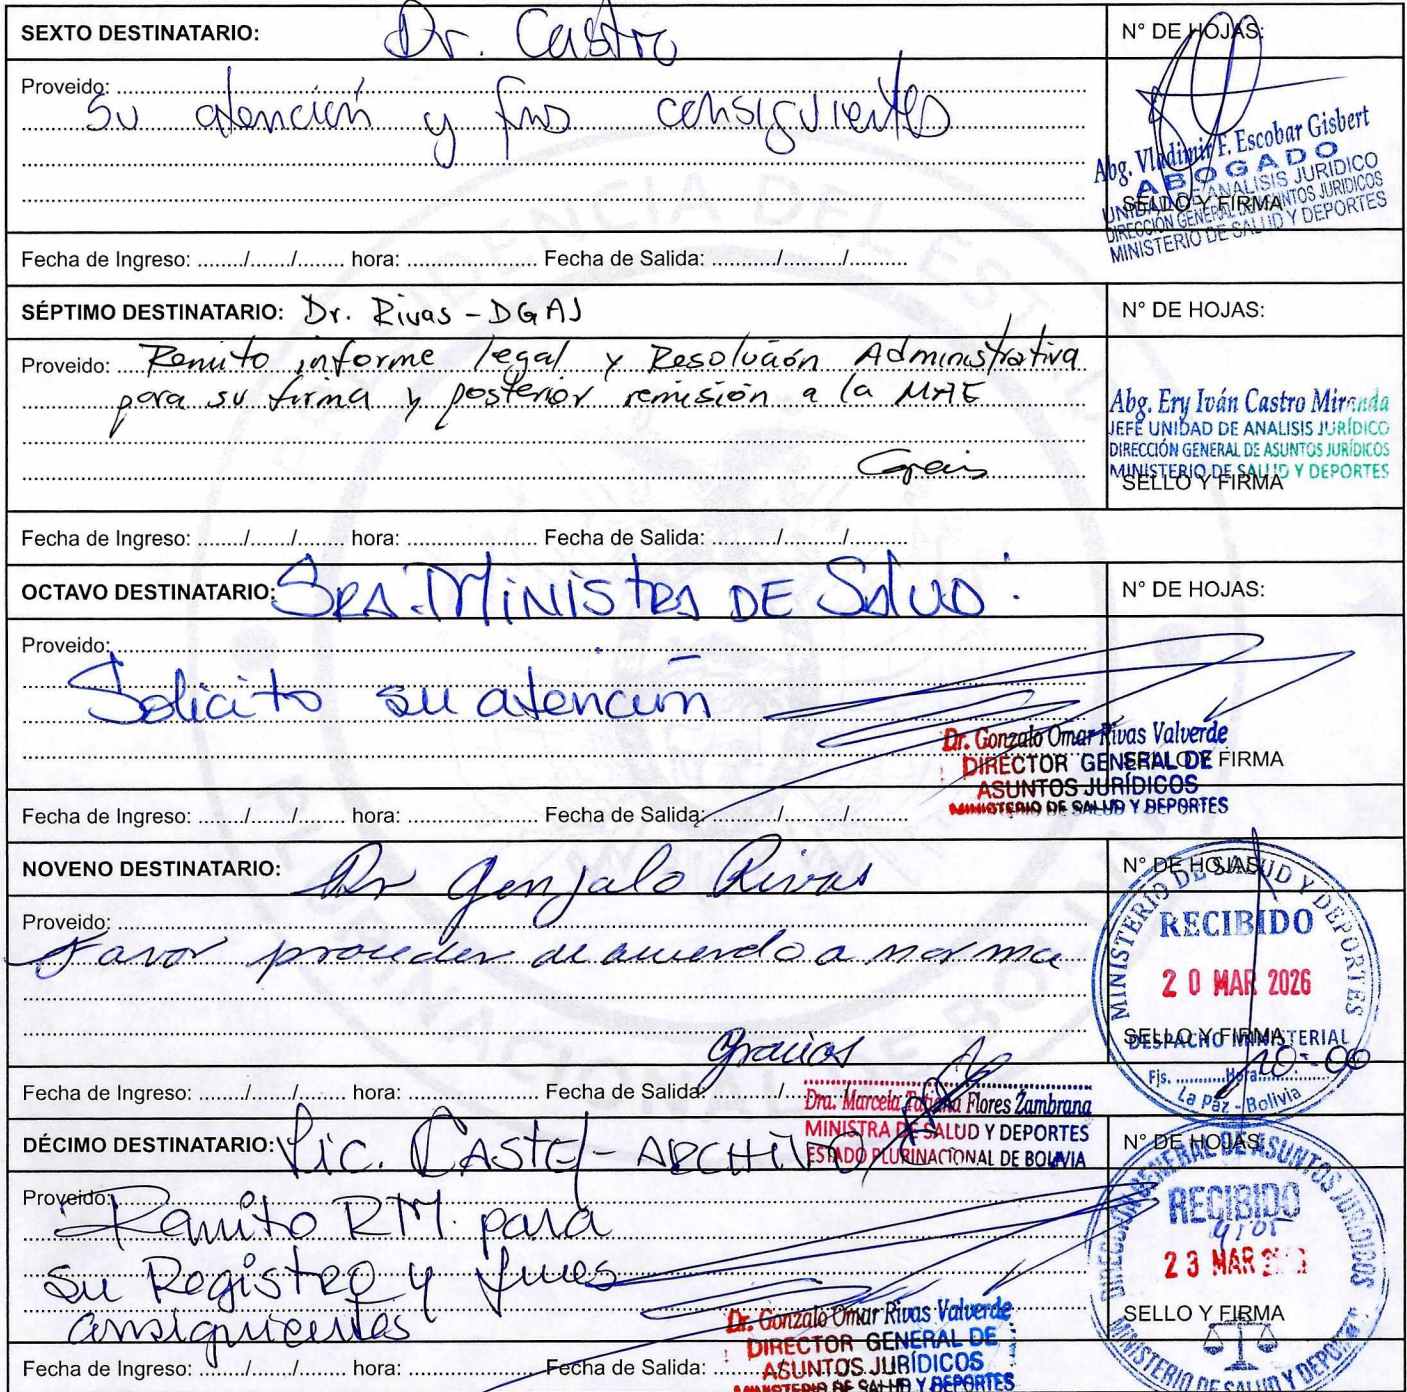 SEXTO DESTINATARIO: Dr. Castro
N° DE HOJAS:
Proveido:
Su atención y fines consiguientes
Abg. Vladimir F. Escobar Gisbert
ABOGADO
UNIDAD DE ANALISIS JURIDICO
DIRECCIÓN GENERAL DE ASUNTOS JURIDICOS
MINISTERIO DE SALUD Y DEPORTES
SELLO Y FIRMA
Fecha de Ingreso: ......../......./........ hora: ...................... Fecha de Salida: .........../........../..........
SÉPTIMO DESTINATARIO: Dr. Rivas - DGAJ
N° DE HOJAS:
Proveido: Remito informe legal y Resolución Administrativa
para su firma y posterior remisión a la MAE
Abg. Ery Iván Castro Miranda
JEFE UNIDAD DE ANALISIS JURÍDICO
DIRECCIÓN GENERAL DE ASUNTOS JURÍDICOS
MINISTERIO DE SALUD Y DEPORTES
SELLO Y FIRMA
Fecha de Ingreso: ......../......./........ hora: ...................... Fecha de Salida: .........../........../..........
OCTAVO DESTINATARIO: SRA. MINISTRA DE SALUD.
N° DE HOJAS:
Proveido:
Solicito su atención
Dr. Gonzalo Omar Rivas Valverde
DIRECTOR GENERAL DE
ASUNTOS JURÍDICOS
MINISTERIO DE SALUD Y DEPORTES
SELLO Y FIRMA
Fecha de Ingreso: ......../......./........ hora: ...................... Fecha de Salida: .........../........../..........
NOVENO DESTINATARIO: Dr Gonzalo Rivas
N° DE HOJAS:
Proveido:
Favor proceder de acuerdo a norma
Gracias
MINISTERIO DE SALUD Y DEPORTES
RECIBIDO
20 MAR 2026
DESPACHO MINISTERIAL
SELLO Y FIRMA
Fjs. ........... Hora: 10:00
La Paz - Bolivia
Fecha de Ingreso: ......../......./........ hora: ...................... Fecha de Salida: .........../
Dra. Marcela Tatiana Flores Zambrana
MINISTRA DE SALUD Y DEPORTES
ESTADO PLURINACIONAL DE BOLIVIA
DÉCIMO DESTINATARIO: Lic. CASTEL - ARCHIVO
N° DE HOJAS:
Proveido:
Remito RM. para
su Registro y fines
consiguientes
DIRECCIÓN GENERAL DE ASUNTOS JURIDICOS
RECIBIDO
23 MAR
MINISTERIO DE SALUD Y DEPORTES
SELLO Y FIRMA
Dr. Gonzalo Omar Rivas Valverde
DIRECTOR GENERAL DE
ASUNTOS JURÍDICOS
MINISTERIO DE SALUD Y DEPORTES
Fecha de Ingreso: ......../......./........ hora: ...................... Fecha de Salida: